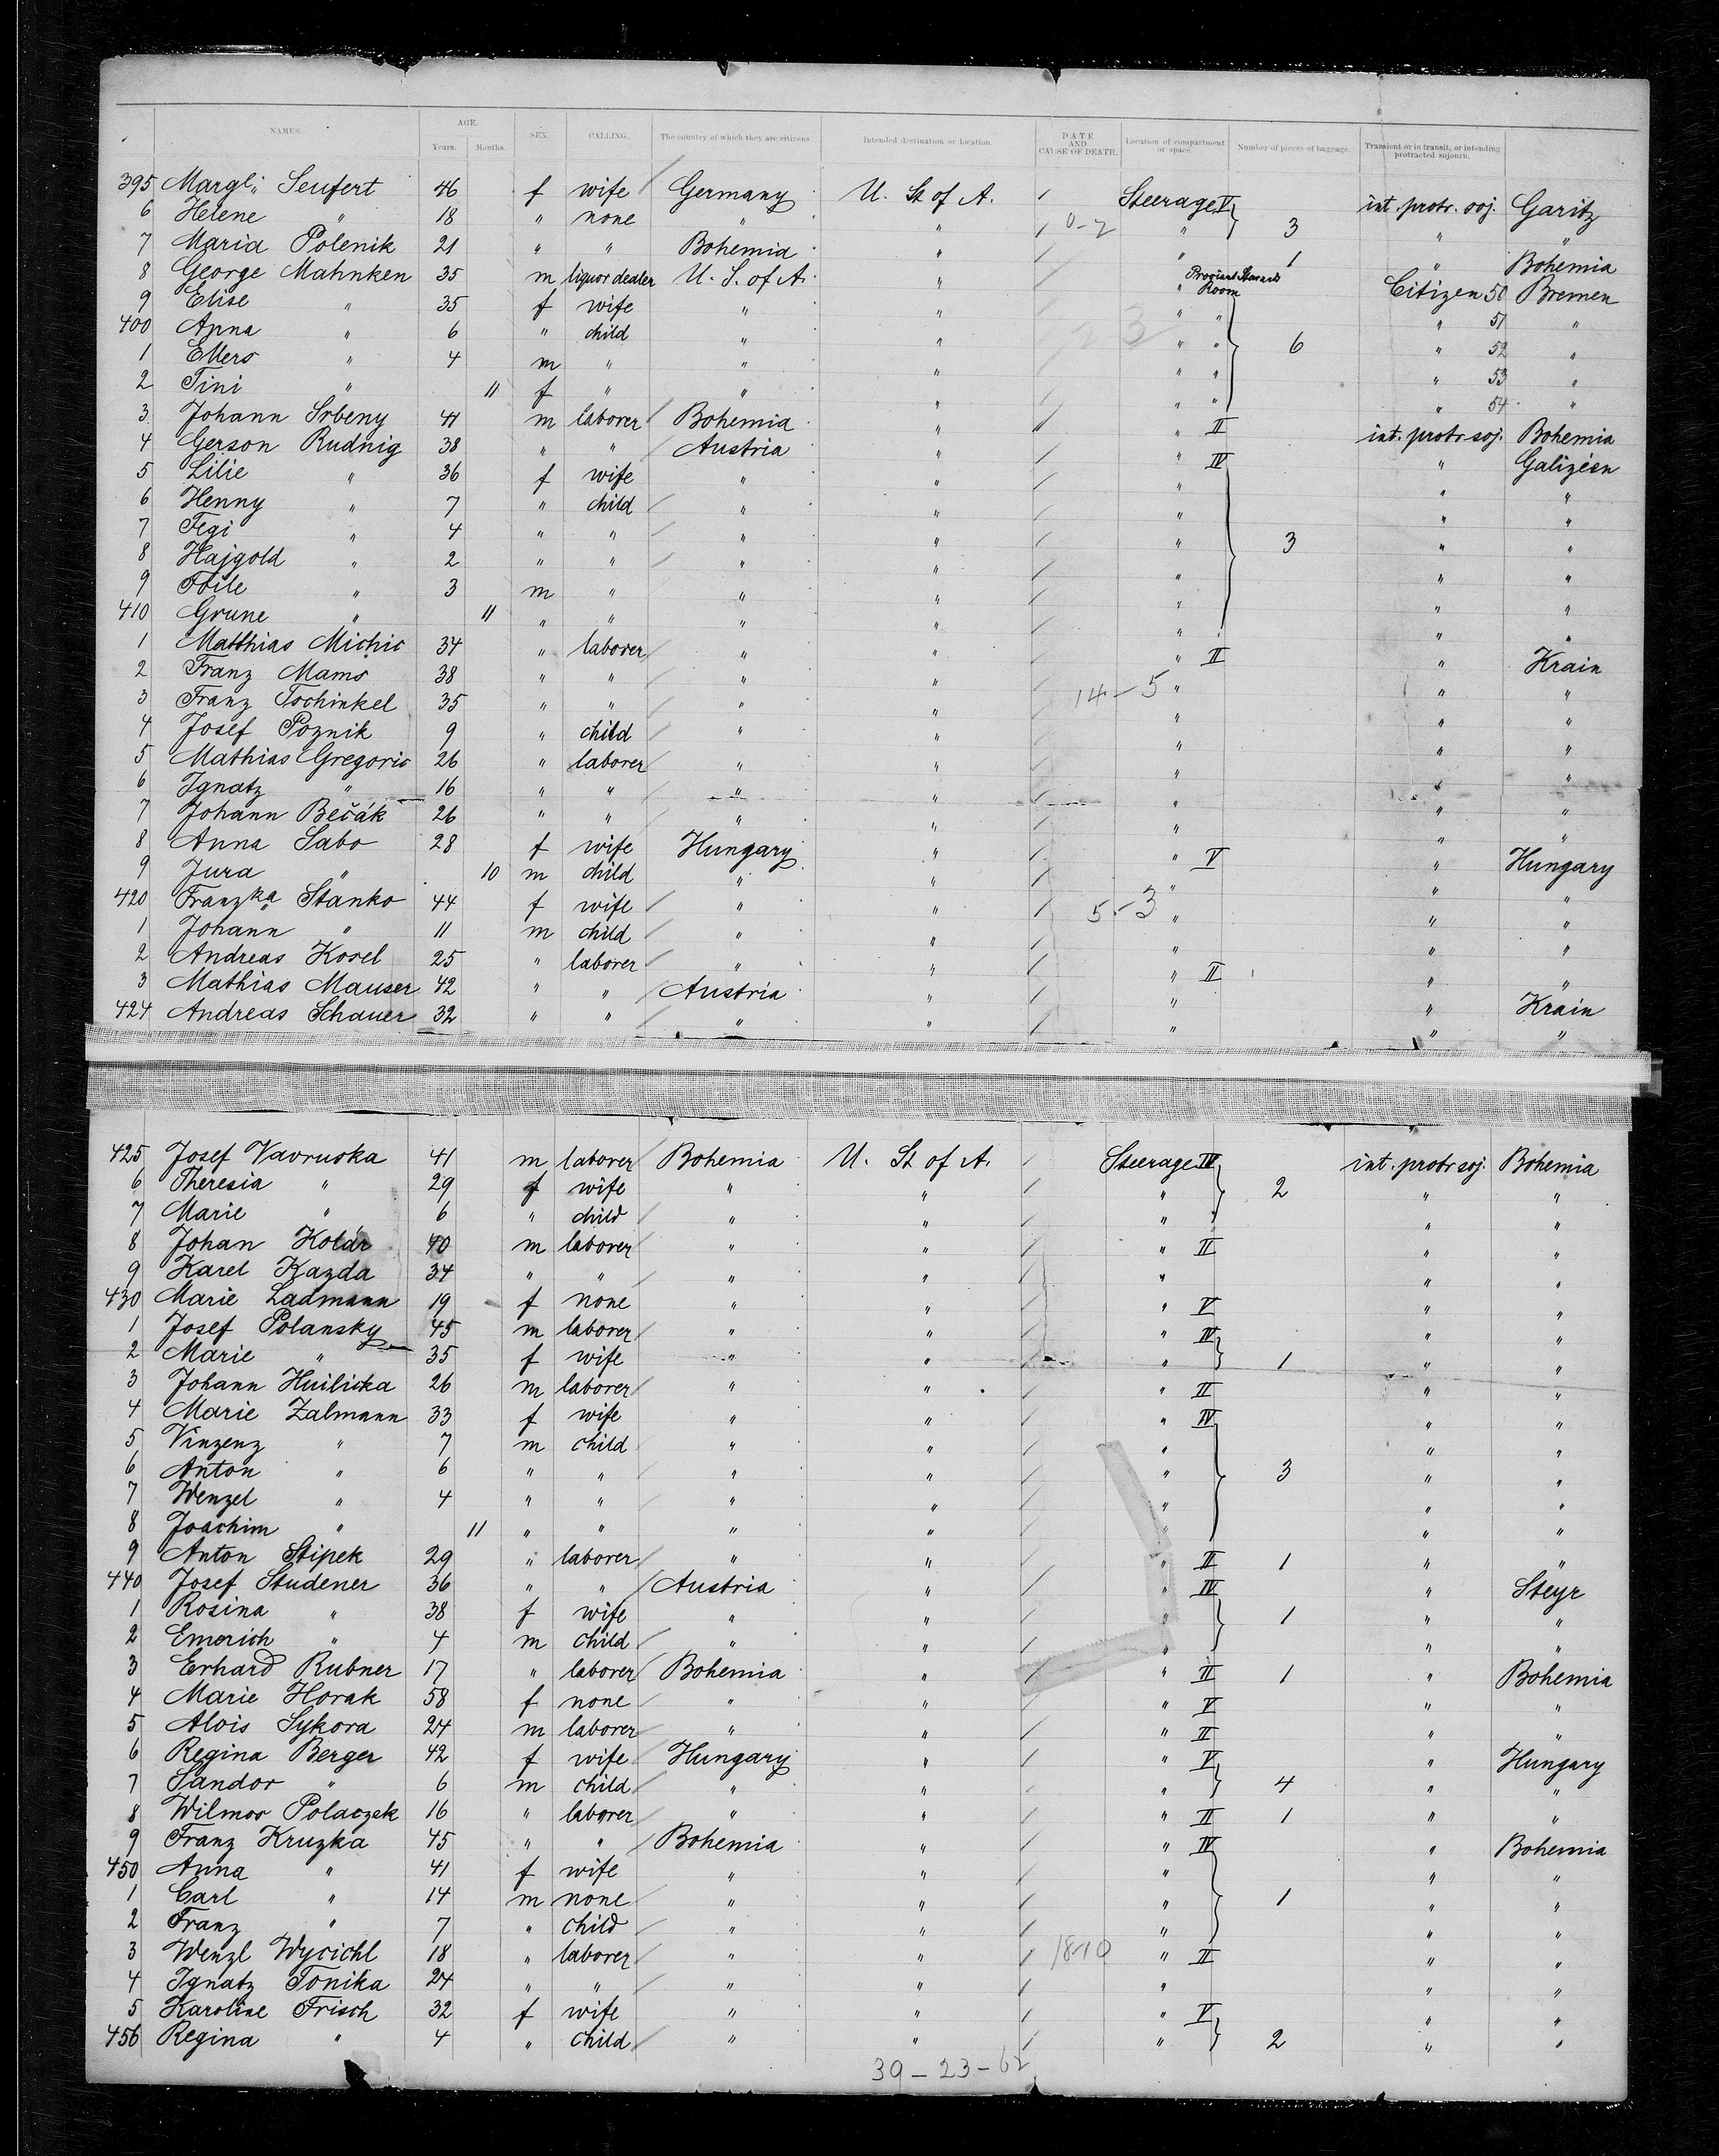 NAMES. AGE. Years. Months. SEX. CALLING. The country of which they are citizens. Intended destination or location. DATE AND CAUSE OF DEATH. Location of compartment or space. Number of pieces of baggage. Transient or in transit, or intending protracted sojourn.
395 Margl. Seufert 46 f wife Germany U. St of A. Steerage V int. protr. soj. Garitz
6 Helene " 18 " none " " " 3 " "
7 Maria Polenik 21 " " Bohemia " " 1 " Bohemia
8 George Mahnken 35 m liquor dealer U. S. of A. " " Room Citizen 50 Bremen
9 Elise " 35 f wife " " " " " 51 "
400 Anna " 6 " child " " " " 6 " 52 "
1 Ellers " 4 m " " " " " " 53 "
2 Tini " 11 f " " " " " " 54 "
3 Johann Srbeny 41 m laborer Bohemia " " II int. protr. soj. Bohemia
4 Gerson Rudnig 38 " " Austria " " IV " Galizien
5 Lilie " 36 f wife " " " " "
6 Henny " 7 " child " " " " "
7 Fegi " 4 " " " " " 3 " "
8 Hajgold " 2 " " " " " " "
9 Foile " 3 m " " " " " "
410 Grune " 11 " " " " " " "
1 Matthias Michic 34 " laborer " " " II " Krain
2 Franz Mams 38 " " " " 14-5 " " "
3 Franz Tschinkel 35 " " " " " " "
4 Josef Poznik 9 " child " " " " "
5 Mathias Gregoric 26 " laborer " " " " "
6 Ignatz " 16 " " " " " " "
7 Johann Bečák 26 " " " " " " "
8 Anna Sabo 28 f wife Hungary " " V " Hungary
9 Jura " 10 m child " " " " "
420 Franzka Stanko 44 f wife " " 5-3 " " "
1 Johann " 11 m child " " " " "
2 Andreas Kosel 25 " laborer " " " II " "
3 Mathias Mauser 42 " " Austria " " " Krain
424 Andreas Schauer 32 " " " " " " "
425 Josef Vavruska 41 m laborer Bohemia U. St of A. Steerage IV int. protr soj. Bohemia
6 Theresia " 29 f wife " " " 2 " "
7 Marie " 6 " child " " " " "
8 Johan Kolár 40 m laborer " " " II " "
9 Karel Kazda 34 " " " " " " "
430 Marie Ladmann 19 f none " " " V " "
1 Josef Polansky 45 m laborer " " " IV " "
2 Marie " 35 f wife " " " 1 " "
3 Johann Huilicka 26 m laborer " " " II " "
4 Marie Zalmann 33 f wife " " " IV " "
5 Vinzenz " 7 m child " " " " "
6 Anton " 6 " " " " " 3 " "
7 Wenzel " 4 " " " " " " "
8 Joachim " 11 " " " " " " "
9 Anton Stipek 29 " laborer " " " II 1 " "
440 Josef Studener 36 " " Austria " " IV " Steyr
1 Rosina " 38 f wife " " " 1 " "
2 Emerich " 4 m child " " " " "
3 Erhard Rubner 17 " laborer Bohemia " " II 1 " Bohemia
4 Marie Horak 58 f none " " " V " "
5 Alois Sykora 24 m laborer " " " II " "
6 Regina Berger 42 f wife Hungary " " V " Hungary
7 Sandor " 6 m child " " " 4 " "
8 Wilmos Polaczek 16 " laborer " " " II 1 " "
9 Franz Kruzka 45 " " Bohemia " " IV " Bohemia
450 Anna " 41 f wife " " " " "
1 Carl " 14 m none " " " 1 " "
2 Franz " 7 " child " " " " "
3 Wenzl Wycichl 18 " laborer " " 18-10 " II " "
4 Ignatz Tonika 24 " " " " " " "
5 Karoline Frisch 32 f wife " " " V " "
456 Regina " 4 " child " " " 2 " "
39-23-62